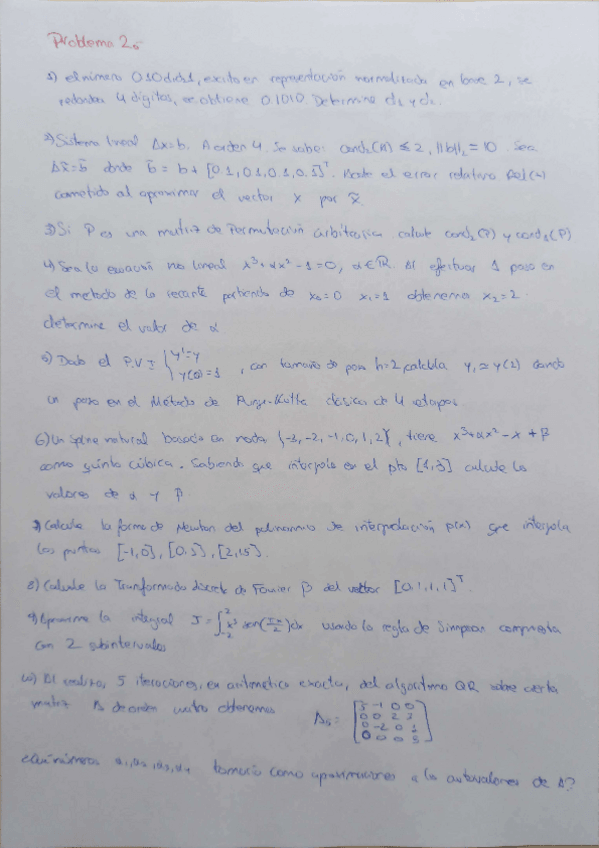 Problema 2.-
1) el número 0.10d₁d₂1, escrito en representación normalizada en base 2, se
redondea 4 dígitos, se obtiene 0.1010 Determine d₁ y d₂.
2) Sistema lineal Ax=b. A orden 4. Se sabe: cond₂(A) ≤ 2, ||b||₂ = 10. Sea
Ax̃=b̃ donde b̃ = b + [0.1, 0.1, 0.1, 0.5]ᵀ. el error relativo Rel(x)
cometido al aproximar el vector x por x̃.
3) Si P es una matriz de Permutación arbitraria calcule cond₂(P) y (P)
4) Sea la ecuación no lineal x³+αx²-1=0, α∈ℝ. Al efectuar 1 paso en
el metodo de la secante partiendo de x₀=0 x₁=1 obtenemos x₂=2.
determine el valor de α
5) Dado el P.V.I { y'=y y(0)=1 , con tamaño de paso h=2, calcula y₁≈y(2) dando
un paso en el Método de Runge-Kutta clásico de 4 etapas
6) Un spline natural basado en nodos {-3, -2, -1, 0, 1, 2}, tiene x³+αx²-x+β
como quinta cúbica. Sabiendo que interpola en el pto [1,3] calcule los
valores de α y β
7) Calcule la forma de Newton del polinomio de interpolación p(x) que interpola
los puntos [-1,0], [0,5], [2,15].
8) Calcule la Transformada discreta de Fourier β del vector [0,1,1,1]ᵀ.
9) Aproxime la integral J=∫₋₂² x³ sen(πx/2)dx usando la regla de Simpson compuesta
con 2 subintervalos
10) Al realizar, 5 iteraciones, en aritmética exacta, del algoritmo QR sobre cierta
matriz A de orden cuatro obtenemos A₅ =
0 0 0 5
¿Qué números α₁, α₂, α₃, α₄ tomaría como aproximaciones a los autovalores de A?